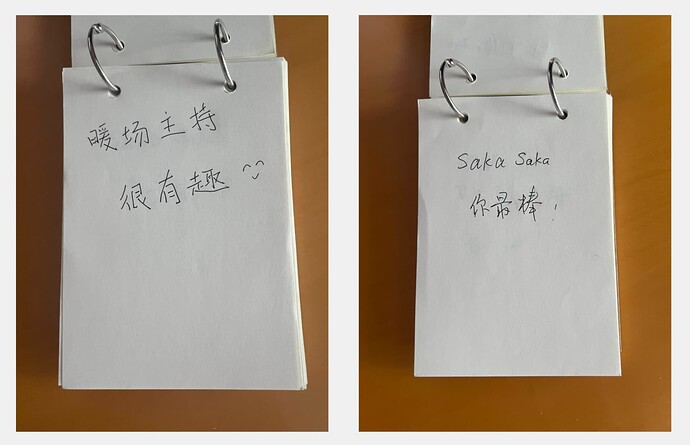 暖场主持
很有趣 ^^
Saka Saka
你最棒！